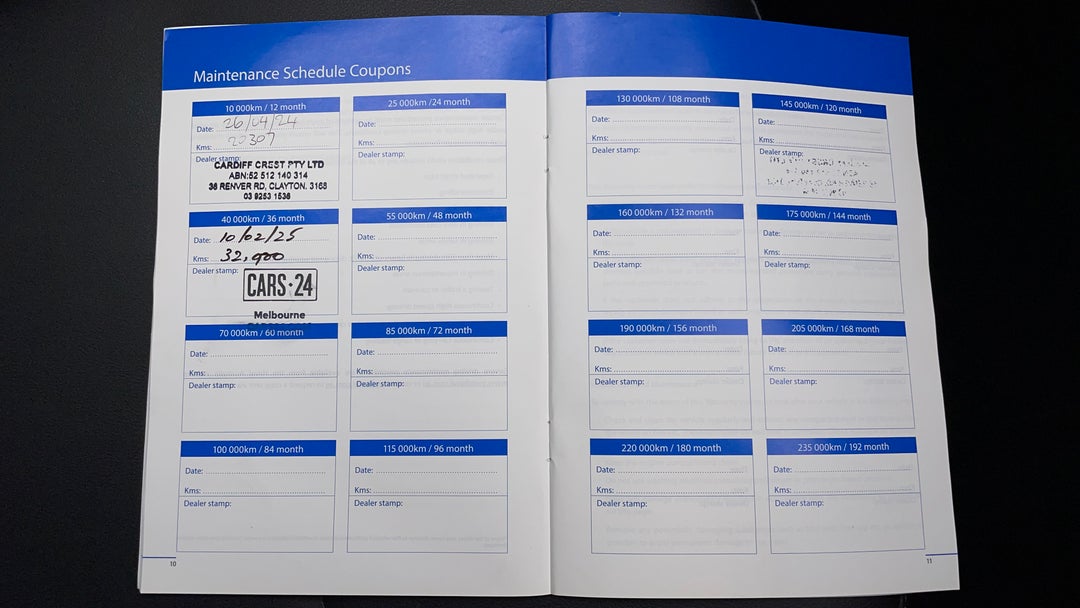 Maintenance Schedule Coupons
10 000km / 12 month
Date: 26/04/24
Kms: 20307
Dealer stamp:
CARDIFF CREST PTY LTD
ABN:52 512 140 314
36 RENVER RD, CLAYTON, 3168
03 9253 1536
25 000km /24 month
Date:
Kms:
Dealer stamp:
40 000km / 36 month
Date: 10/02/25
Kms: 32,900
Dealer stamp:
CARS·24
Melbourne
55 000km / 48 month
Date:
Kms:
Dealer stamp:
70 000km / 60 month
Date:
Kms:
Dealer stamp:
85 000km / 72 month
Date:
Kms:
Dealer stamp:
100 000km / 84 month
Date:
Kms:
Dealer stamp:
115 000km / 96 month
Date:
Kms:
Dealer stamp:
10
130 000km / 108 month
Date:
Kms:
Dealer stamp:
145 000km / 120 month
Date:
Kms:
Dealer stamp:
160 000km / 132 month
Date:
Kms:
Dealer stamp:
175 000km / 144 month
Date:
Kms:
Dealer stamp:
190 000km / 156 month
Date:
Kms:
Dealer stamp:
205 000km / 168 month
Date:
Kms:
Dealer stamp:
220 000km / 180 month
Date:
Kms:
Dealer stamp:
235 000km / 192 month
Date:
Kms:
Dealer stamp:
11